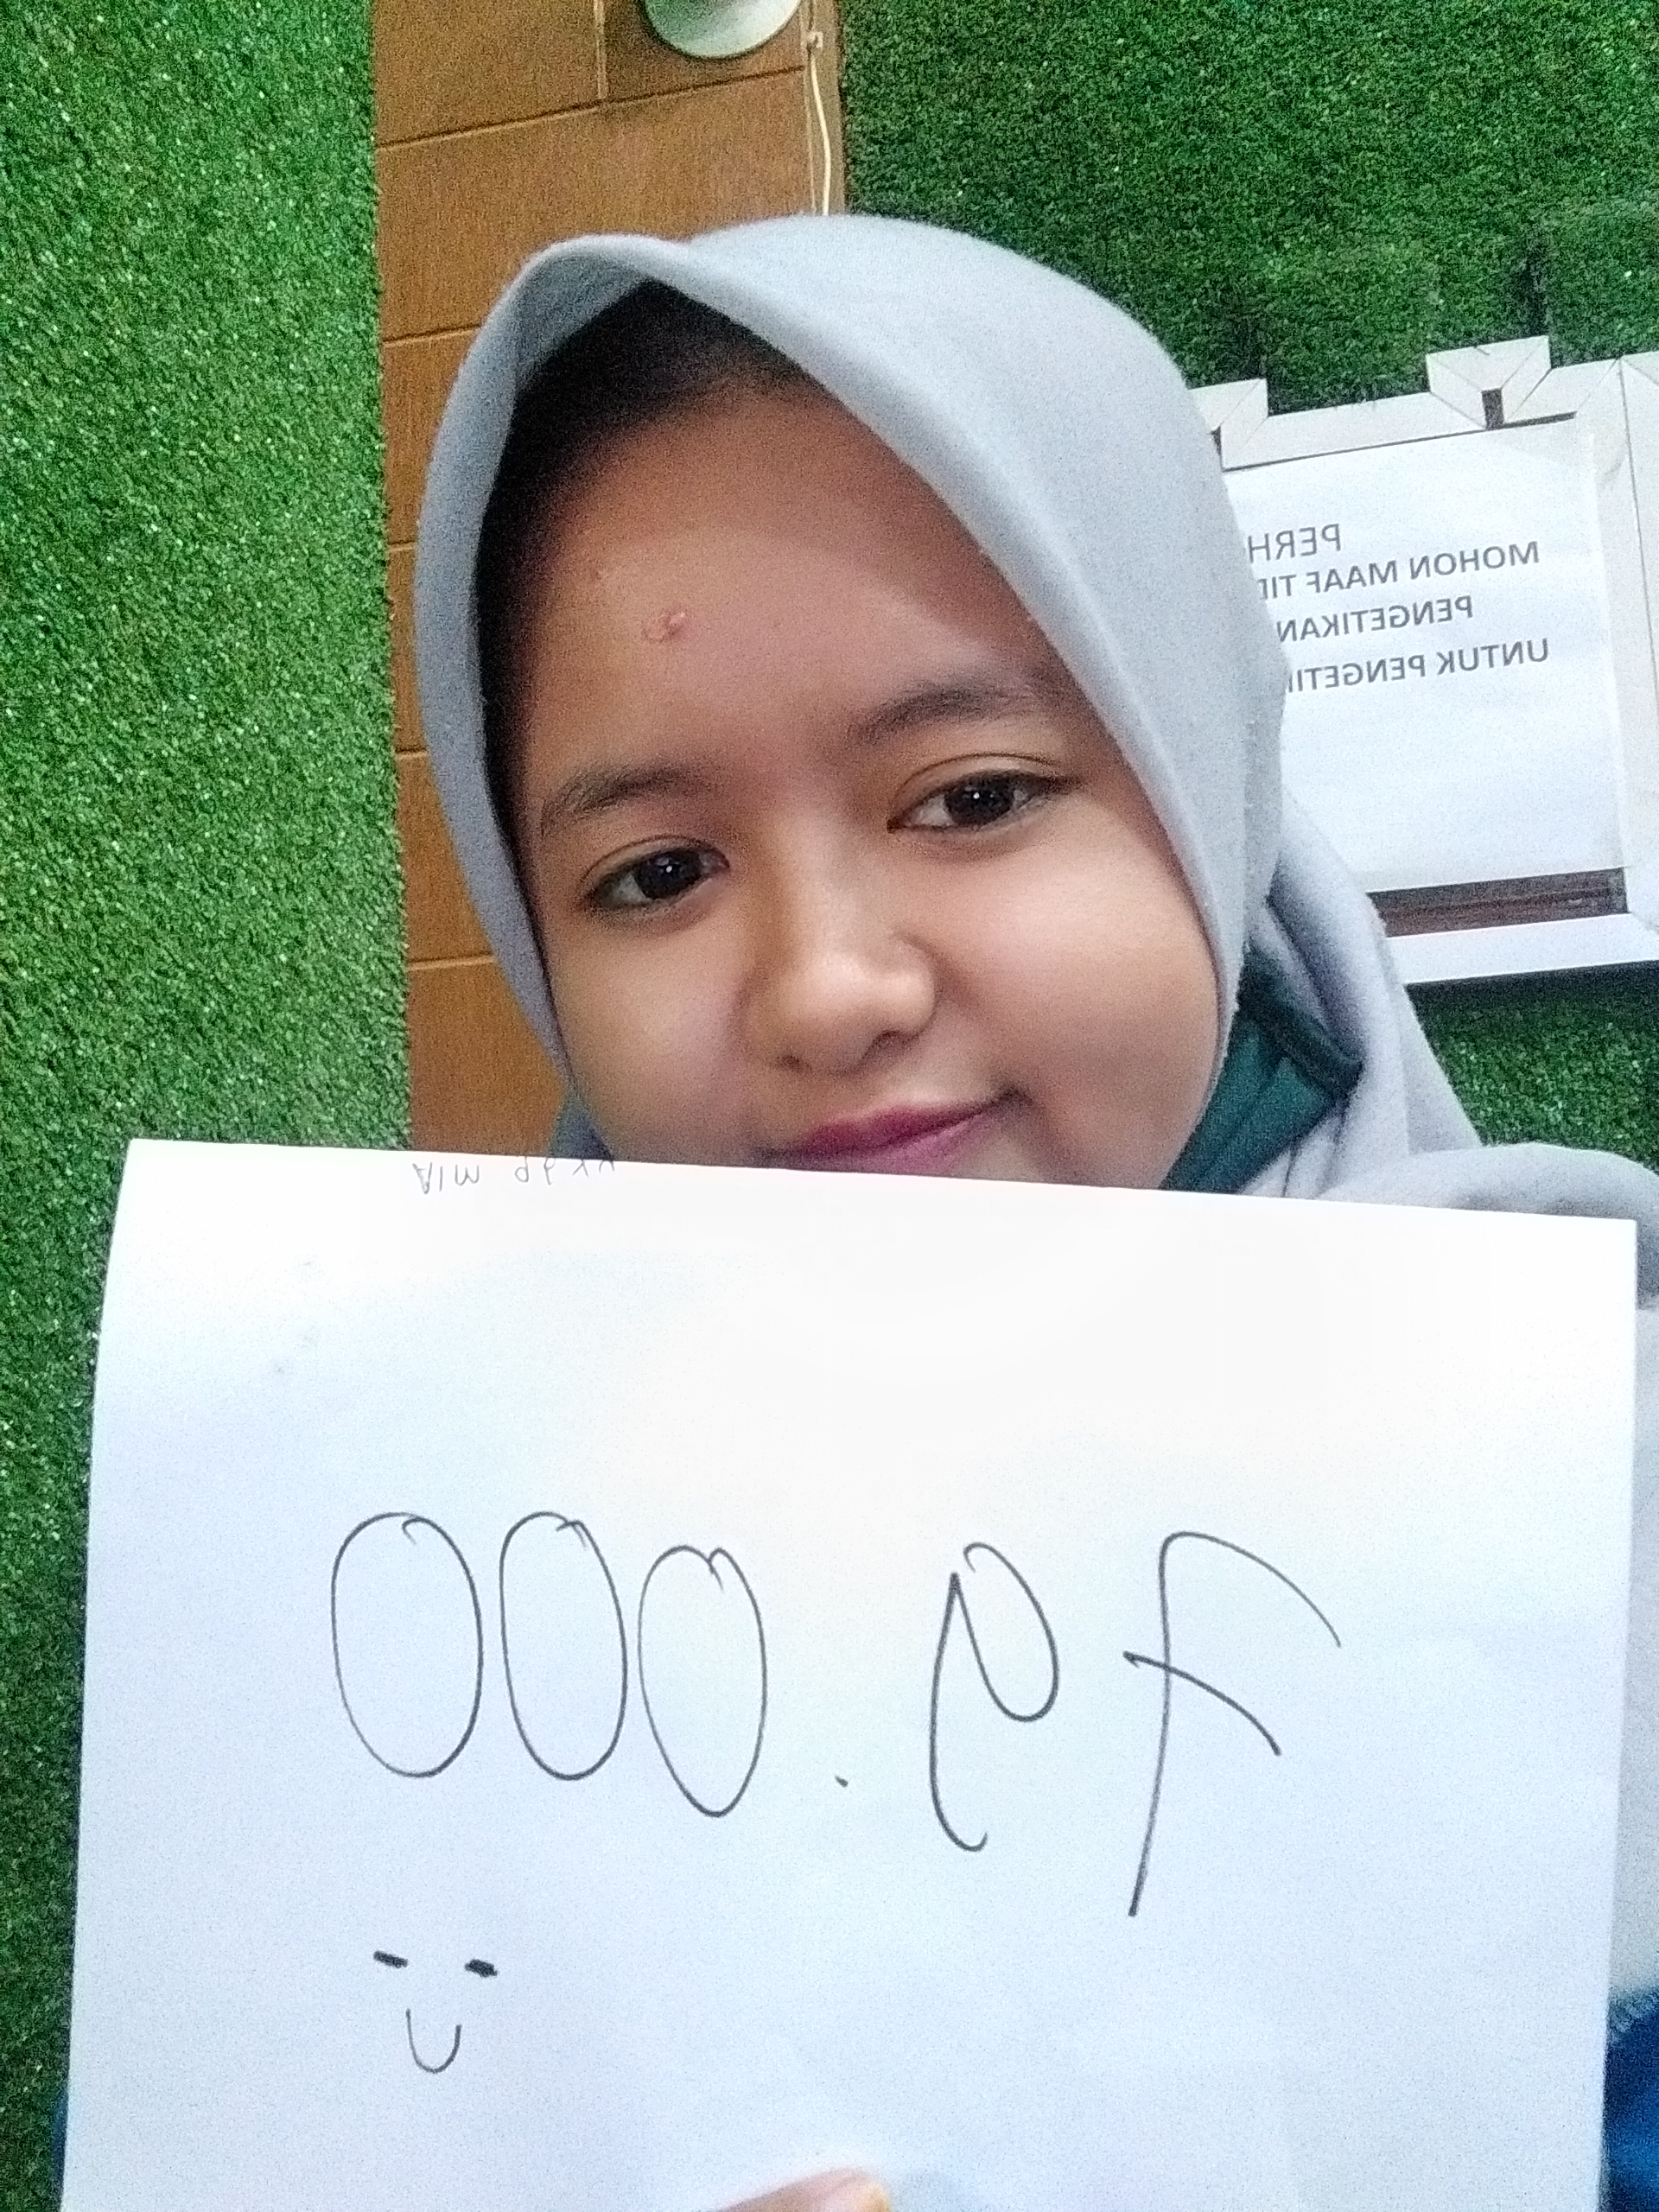 PERH
MOHON MAAF TI
PENGETIKAN
UNTUK PENGETI
79.000